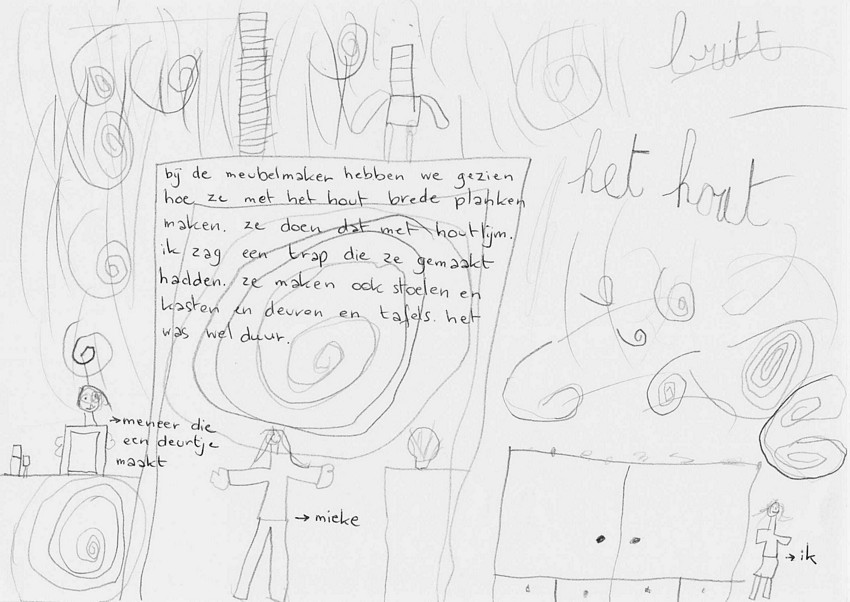 britt
het hout
bij de meubelmaker hebben we gezien
hoe ze met het hout brede planken
maken. ze doen dat met houtlijm.
ik zag een trap die ze gemaakt
hadden. ze maken ook stoelen en
kasten en deuren en tafels. het
was wel duur.
→meneer die
een deurtje
maakt
→ mieke
→ ik